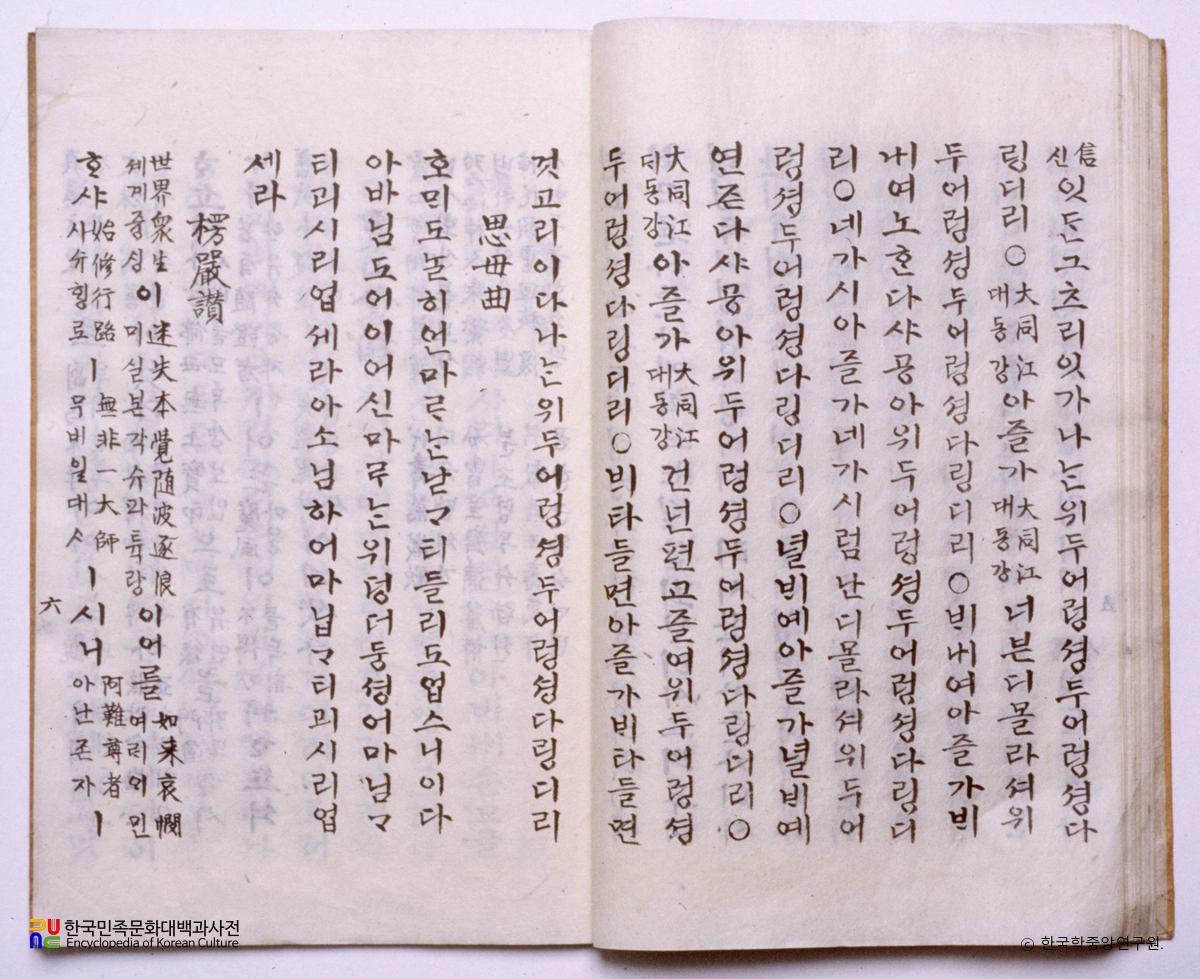 信신잇ᄃᆞᆫ그츠리잇가나ᄂᆞᆫ위두어렁셩두어렁셩다
링디리○大同江대동강아즐가大同江대동강너븐디몰라셔위
두어렁셩두어렁셩다링디리○ᄇᆡ내여아즐가ᄇᆡ
내여노ᄒᆞᆫ다샤공아위두어렁셩두어렁셩다링디
리○네가시아즐가네가시럼난디몰라셔위두어
렁셩두어렁셩다링디리○녈ᄇᆡ예아즐가녈ᄇᆡ예
연즌다샤공아위두어렁셩두어렁셩다링디리○
大同江대동강아즐가大同江대동강건넌편고즐여위두어렁셩
두어렁셩다링디리○ᄇᆡ타들면아즐가ᄇᆡ타들면
것고리이다나ᄂᆞᆫ위두어렁셩두어렁셩다링디리
思母曲
호ᄆᆡ도ᄂᆞᆯ히언마ᄅᆞᄂᆞᆫ낟ᄀᆞ티들리도업스니이다
아바님도어이어신마ᄅᆞᄂᆞᆫ위덩더둥셩어마님ᄀᆞ
티괴시리업세라아소님하어마님ᄀᆞ티괴시리업
세라
楞嚴讚
世界衆生세계즁ᄉᆡᆼ이迷失本覺随波逐浪미실본각슈파튝랑이어를如来哀憫여ᄅᆡᄋᆡ민
ᄒᆞ샤始修行路시슈ᄒᆡᆼ로ㅣ無非一大師무비일대ᄉᆞㅣ시니阿難尊者아난존쟈ㅣ
六
한국민족문화대백과사전
Encyclopedia of Korean Culture
© 한국학중앙연구원.